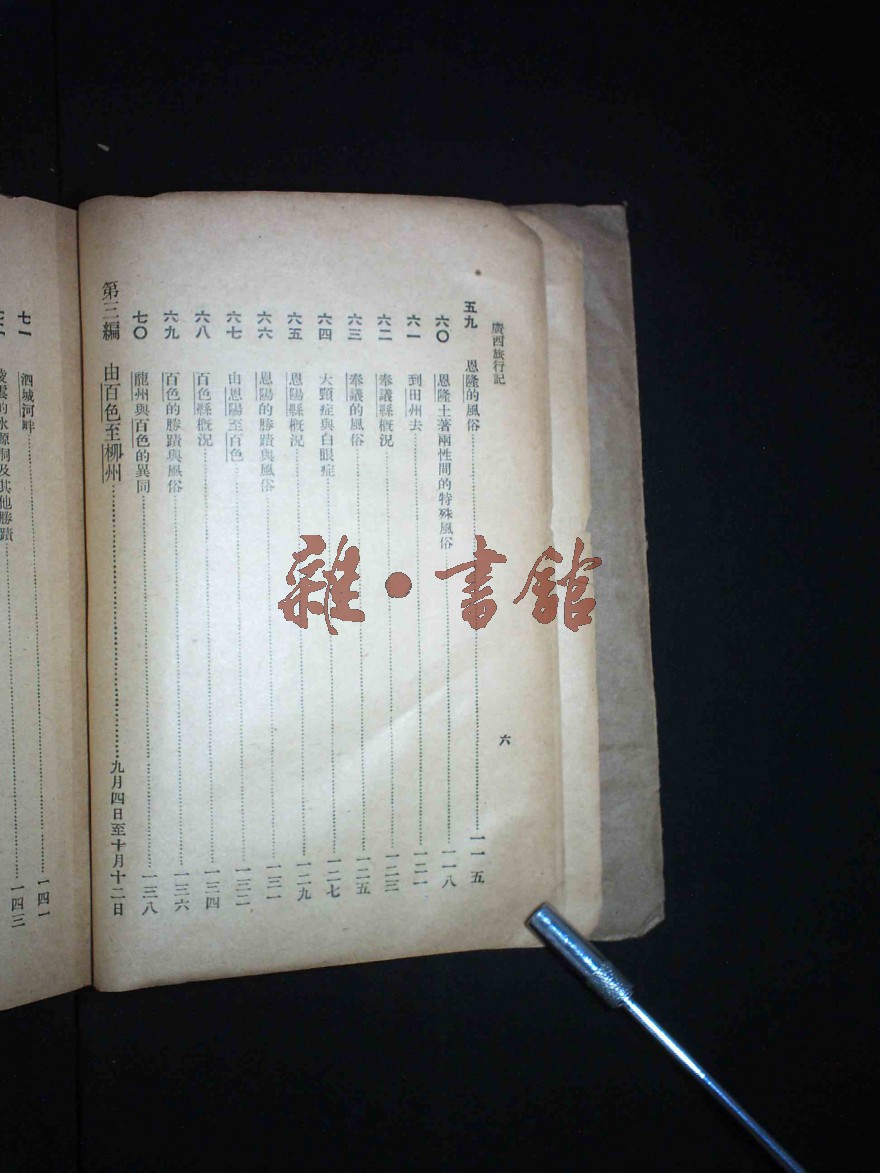 廣西旅行記
六
五九 恩隆的風俗……一一五
六〇 恩隆土著兩性間的特殊風俗……一一八
六一 到田州去……一二一
六二 奉議縣概況……一二三
六三 奉議的風俗……一二五
六四 大頸症與白眼症……一二七
六五 恩陽縣概況……一二九
六六 恩陽的勝蹟與風俗……一三一
六七 由恩陽至百色……一三二
六八 百色縣概況……一三四
六九 百色的勝蹟與風俗……一三六
七〇 龍州與百色的異同……一三八
第三編 由百色至柳州……九月四日至十月十二日
七一 泗城河畔……一四一
凌雲的水源洞及其他勝蹟……一四三
雜·書館